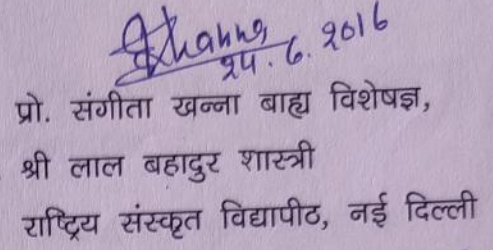 Skhanna
24.6.2016
प्रो. संगीता खन्ना बाह्य विशेषज्ञ,
श्री लाल बहादुर शास्त्री
राष्ट्रिय संस्कृत विद्यापीठ, नई दिल्ली